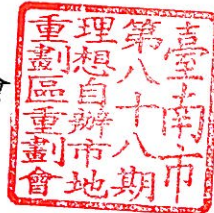 臺南市
第八十八期
理想自辦市地
重劃區重劃會
會